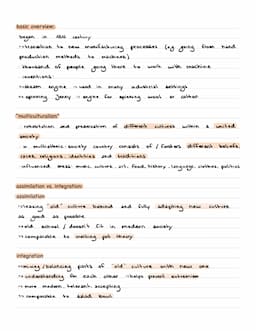 basic overview:
began in 18th century
→ transition to new manufacturing processes (eg going from hand
production methods to machines)
thousand of people going there to work with machine
inventions:
→ steam engine → used in many industrial settings
→ spinning jenny → engine for spinning wool or cotton
"multiculturalism"
retention and preservation of different cultures within a united
society
a multiethnic society country consists of / fosters different beliefs,
races, religions, identities and traditions
influenced areas: music, culture, art, food, history, language, clothes, political
assimilation vs. integration:
assimilation
→ leaving "old" culture behind and fully adapting new culture
as good as possible
→ old school / doesn't fit in modern society
→ comparable to melting pot theory
integration
→ mixing / balancing parts of "old" culture with new one
→ understanding for each other → helps prevent extremism
→ more modern, tolerant, accepting
→ comparable to salad bowl